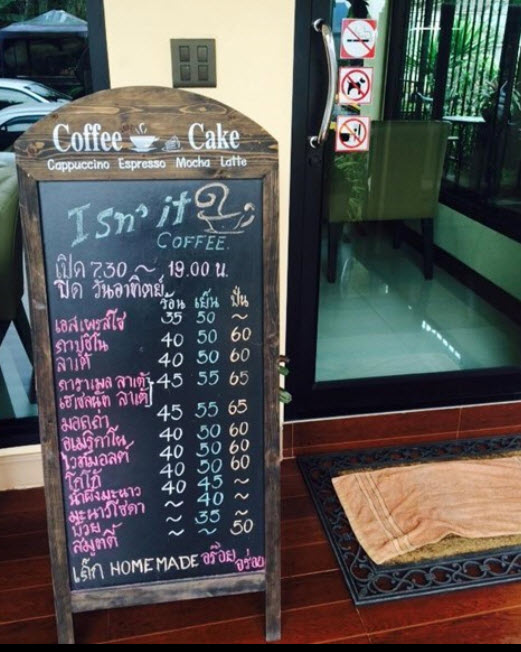 Coffee Cake
Cappuccino Espresso Mocha Latte
Isn't it ?
COFFEE.
เปิด 7.30 ~ 19.00 น.
ปิด วันอาทิตย์
ร้อน เย็น ปั่น
เอสเพรสโซ่ 35 50 ~
คาปูชิโน 40 50 60
ลาเต้ 40 50 60
คาราเมล ลาเต้ 45 55 65
เฮเซลนัท ลาเต้
มอคค่า 45 55 65
อเมริกาโน 40 50 60
ไวท์มอลต์ 40 50 60
โกโก้ 40 50 60
น้ำผึ้งมะนาว 40 45 ~
มะนาวโซดา ~ 40 ~
บ๊วย ~ 35 ~
สมูตตี้ ~ ~ 50
เค้ก HOMEMADE อร๊อย อร่อย